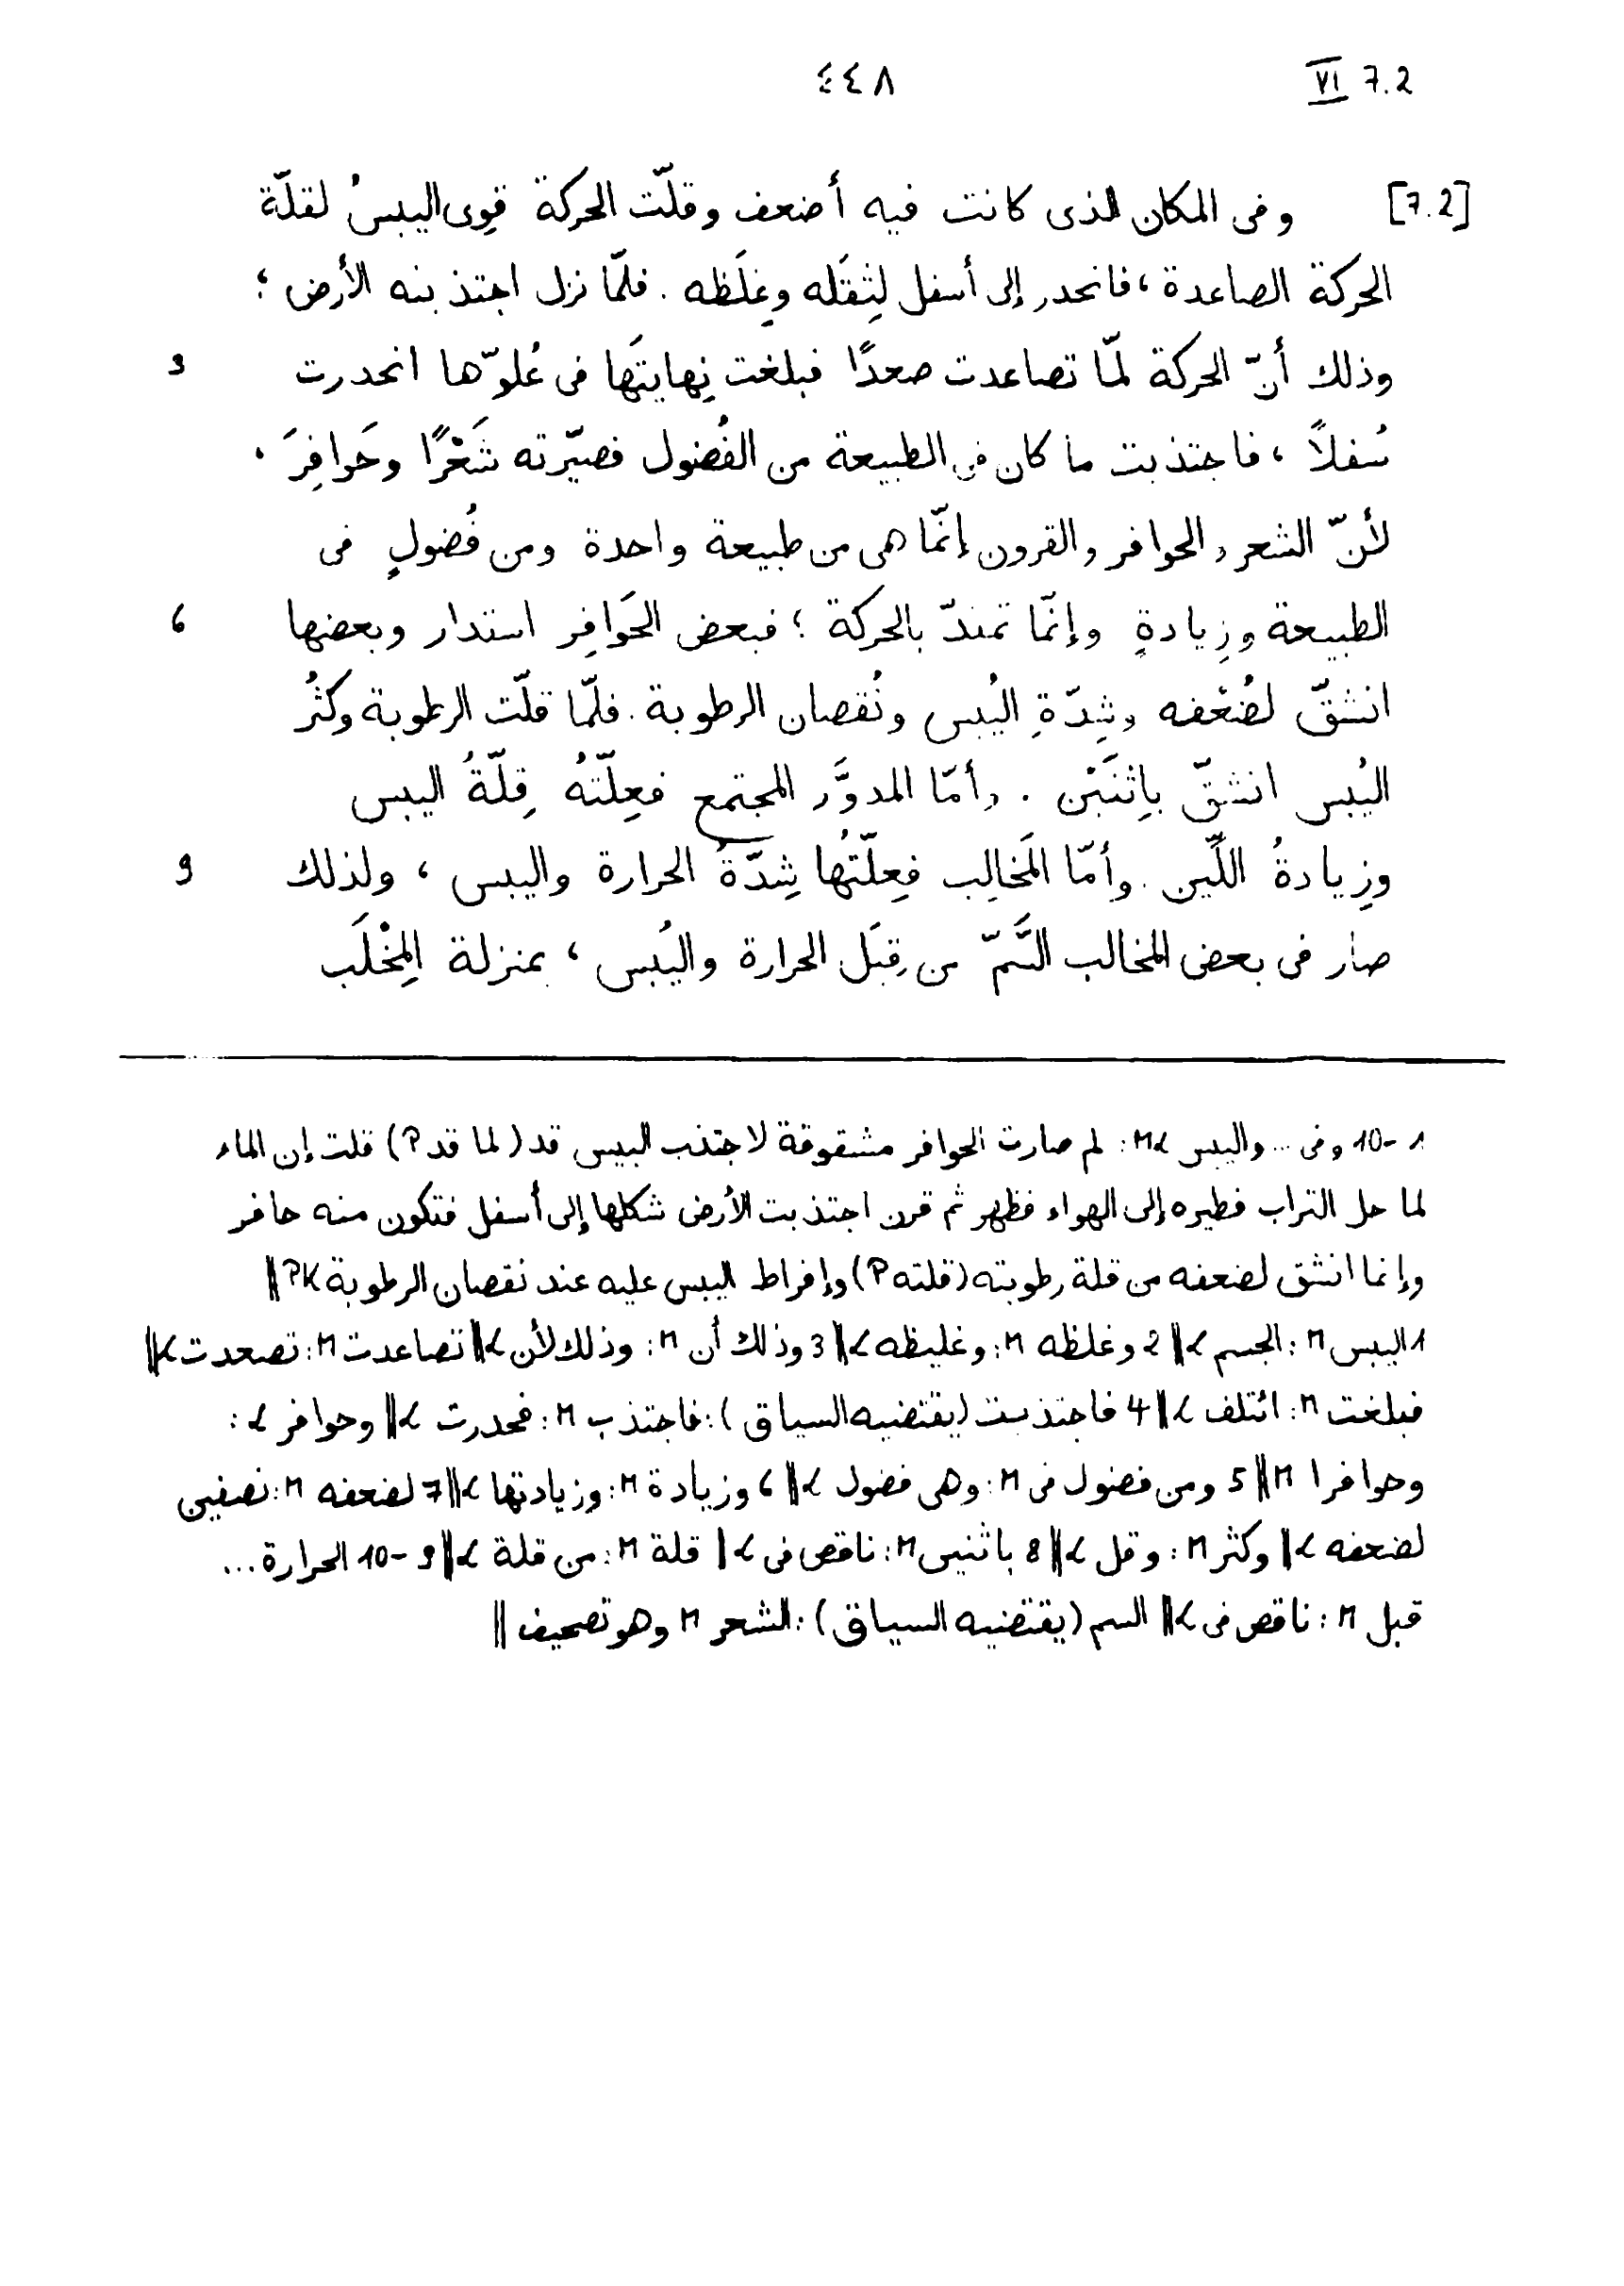 VI 7.2
٤٤٨
[7.2] وفى المكان الذى كانت فيه أضعف وقلّت الحركة قوِى اليبسُ لقلّة
الحركة الصاعدة، فانحدر إلى أسفل لِثِقَله وغِلَظه. فلمّا نزل اجتذبته الأرض؛
وذلك أنّ الحركة لمّا تصاعدت صعدًا فبلغت نِهايتَها فى عُلوّها انحدرت 3
سُفلاً، فاجتذبت ما كان فى الطبيعة من الفُضول فصيّرته شَعْرًا وحَوافِرَ،
لأنّ الشعر والحوافر والقرون إنّما هى من طبيعة واحدة ومن فُضولٍ فى
الطبيعة وزِيادةٍ وإنّما تمتدّ بالحركة؛ فبعض الحَوافِر استدار وبعضها 6
انشقّ لضُعْفه وشِدّةِ اليُبس ونُقصان الرطوبة. فلمّا قلّت الرطوبة وكثُر
اليُبس انشقّ بِاثنَيْن. وأمّا المدوَّر المجتمع فعِلّتهُ قِلّةُ اليبس
وزِيادةُ اللّين. وأمّا المَخالِب فعِلّتُها شِدّةُ الحرارة واليبس، ولذلك 9
صار فى بعض المخالب السَّمّ من قِبَل الحرارة واليُبس، بمنزلة المِخْلَب
١-10 وفى ... واليبس Mα: لم صارت الحوافر مشقوقة لاجتذب اليبس قد (لما قد P) قلت إن الماء
لما حل التراب فطيره إلى الهواء فظهر ثم قرن اجتذبت الأرض شكلها إلى أسفل فتكون منه حافر
وإنما انشق لضعفه من قلة رطوبته (قلته P) وإفراط اليبس عليه عند نقصان الرطوبة PK ||
1 اليبس M: الجسم α || 2 وغلظه M: وغليظه α || 3 وذلك أن M: وذلك لأن α || تصاعدت M: تصعدت K ||
فبلغت M: ائتلف α || 4 فاجتذبت (يقتضيه السياق): فاجتذب M: فحدرت α || وحوافر α:
وحوافرا M || 5 ومن فضول فى M: وهى فضول α || 6 وزيادة M: وزيادتها α || 7 لضعفه M: نصفين
لضعفه α || وكثر M: وقل α || 8 باثنين M: ناقص فى α || قلة M: من قلة α || 9-10 الحرارة ...
قبل M: ناقص فى α || السم (يقتضيه السياق): الشعر M وهو تصحيف ||